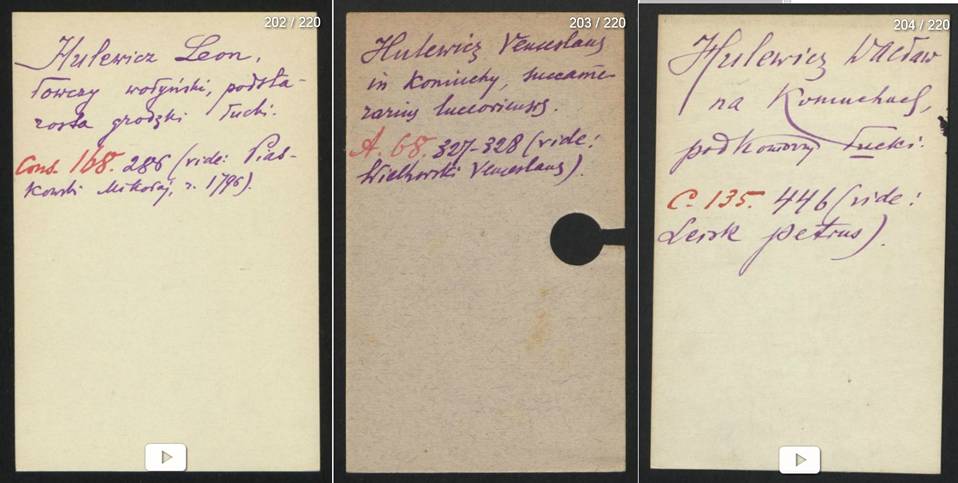 202 / 220
Hulewicz Leon,
łowczy wołyński, podsta-
rosta grodzki łucki.
Cons. 168. 286 (vide: Pias-
kowski Mikołaj, r. 1796).
203 / 220
Hulewicz Venceslaus
in Koniuchy, succame-
rarius luceoriensis.
A. 68. 327-328 (vide:
Wielhorski Venceslaus).
204 / 220
Hulewicz Wacław
na Koniuchach,
podkomorzy łucki.
C. 135. 446 (vide:
Petrus).